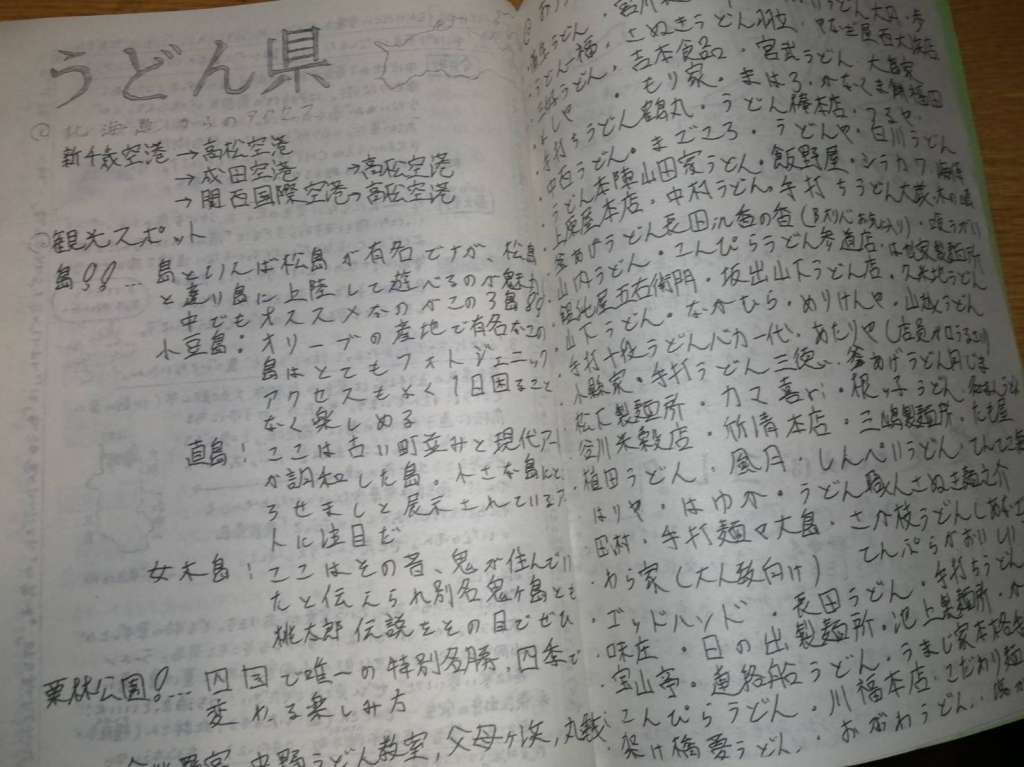 うどん県
北海道からのアクセス
新千歳空港→高松空港
→成田空港→高松空港
→関西国際空港→高松空港
観光スポット
島!!…島といえば松島が有名ですが、松島
と違い島に上陸して遊べるのが魅力
中でもオススメなのがこの3島!!
小豆島:オリーブの産地で有名なこの
島はとてもフォトジェニック
アクセスもよく1日困ること
なく楽しめる
直島:ここは古い町並みと現代アー
が調和した島。小さな島にと
ろせましと展示されているア
トに注目だ
女木島:ここはその昔、鬼が住んでい
たと伝えられ別名鬼ヶ島とも
桃太郎伝説をその目でぜひ
栗林公園!…四国で唯一の特別名勝,四季で
変わる楽しみ方
中野うどん教室,父母ヶ浜,丸亀
うどん一福・さぬきうどん
うどん・吉本食品・宮武うどん・大島家
もり家・まはろ・かなくま餅福田
手打ちうどん鶴丸・うどん棒本店・つるや・
中西うどん・まごころ・うどんや・白川うどん
うどん本陣山田家うどん・飯野屋・シラカワ
上原屋本店・中村うどん・手打ちうどん大蔵
釜あげうどん長田in香の香
山内うどん・こんぴらうどん参道店・はせ家製麺所
五右衛門・坂出山下うどん店・久米池うどん
山下うどん・なかむら・めりけんや・山越うどん
手打十段うどんバカ一代・あたりや
小縣家・手打うどん三徳・釜あげうどん岡じま
松下製麺所・カマ喜ri・根ッ子うどん
谷川米穀店・竹清本店・三嶋製麺所・たも屋
植田うどん・風月・しんぺいうどん・
はりや・はゆか・うどん職人さぬき麺之介
田村・手打麺や大島・さか枝うどん
わら家(大人数向け) てんぷらがおいしい
ゴッドハンド・長田うどん・手打ちうどん
味庄・日の出製麺所・池上製麺所・
宝山亭・連絡船うどん・うまじ家本格
こんぴらうどん・川福本店・こだわり麺
架け橋夢うどん・おがわうどん・